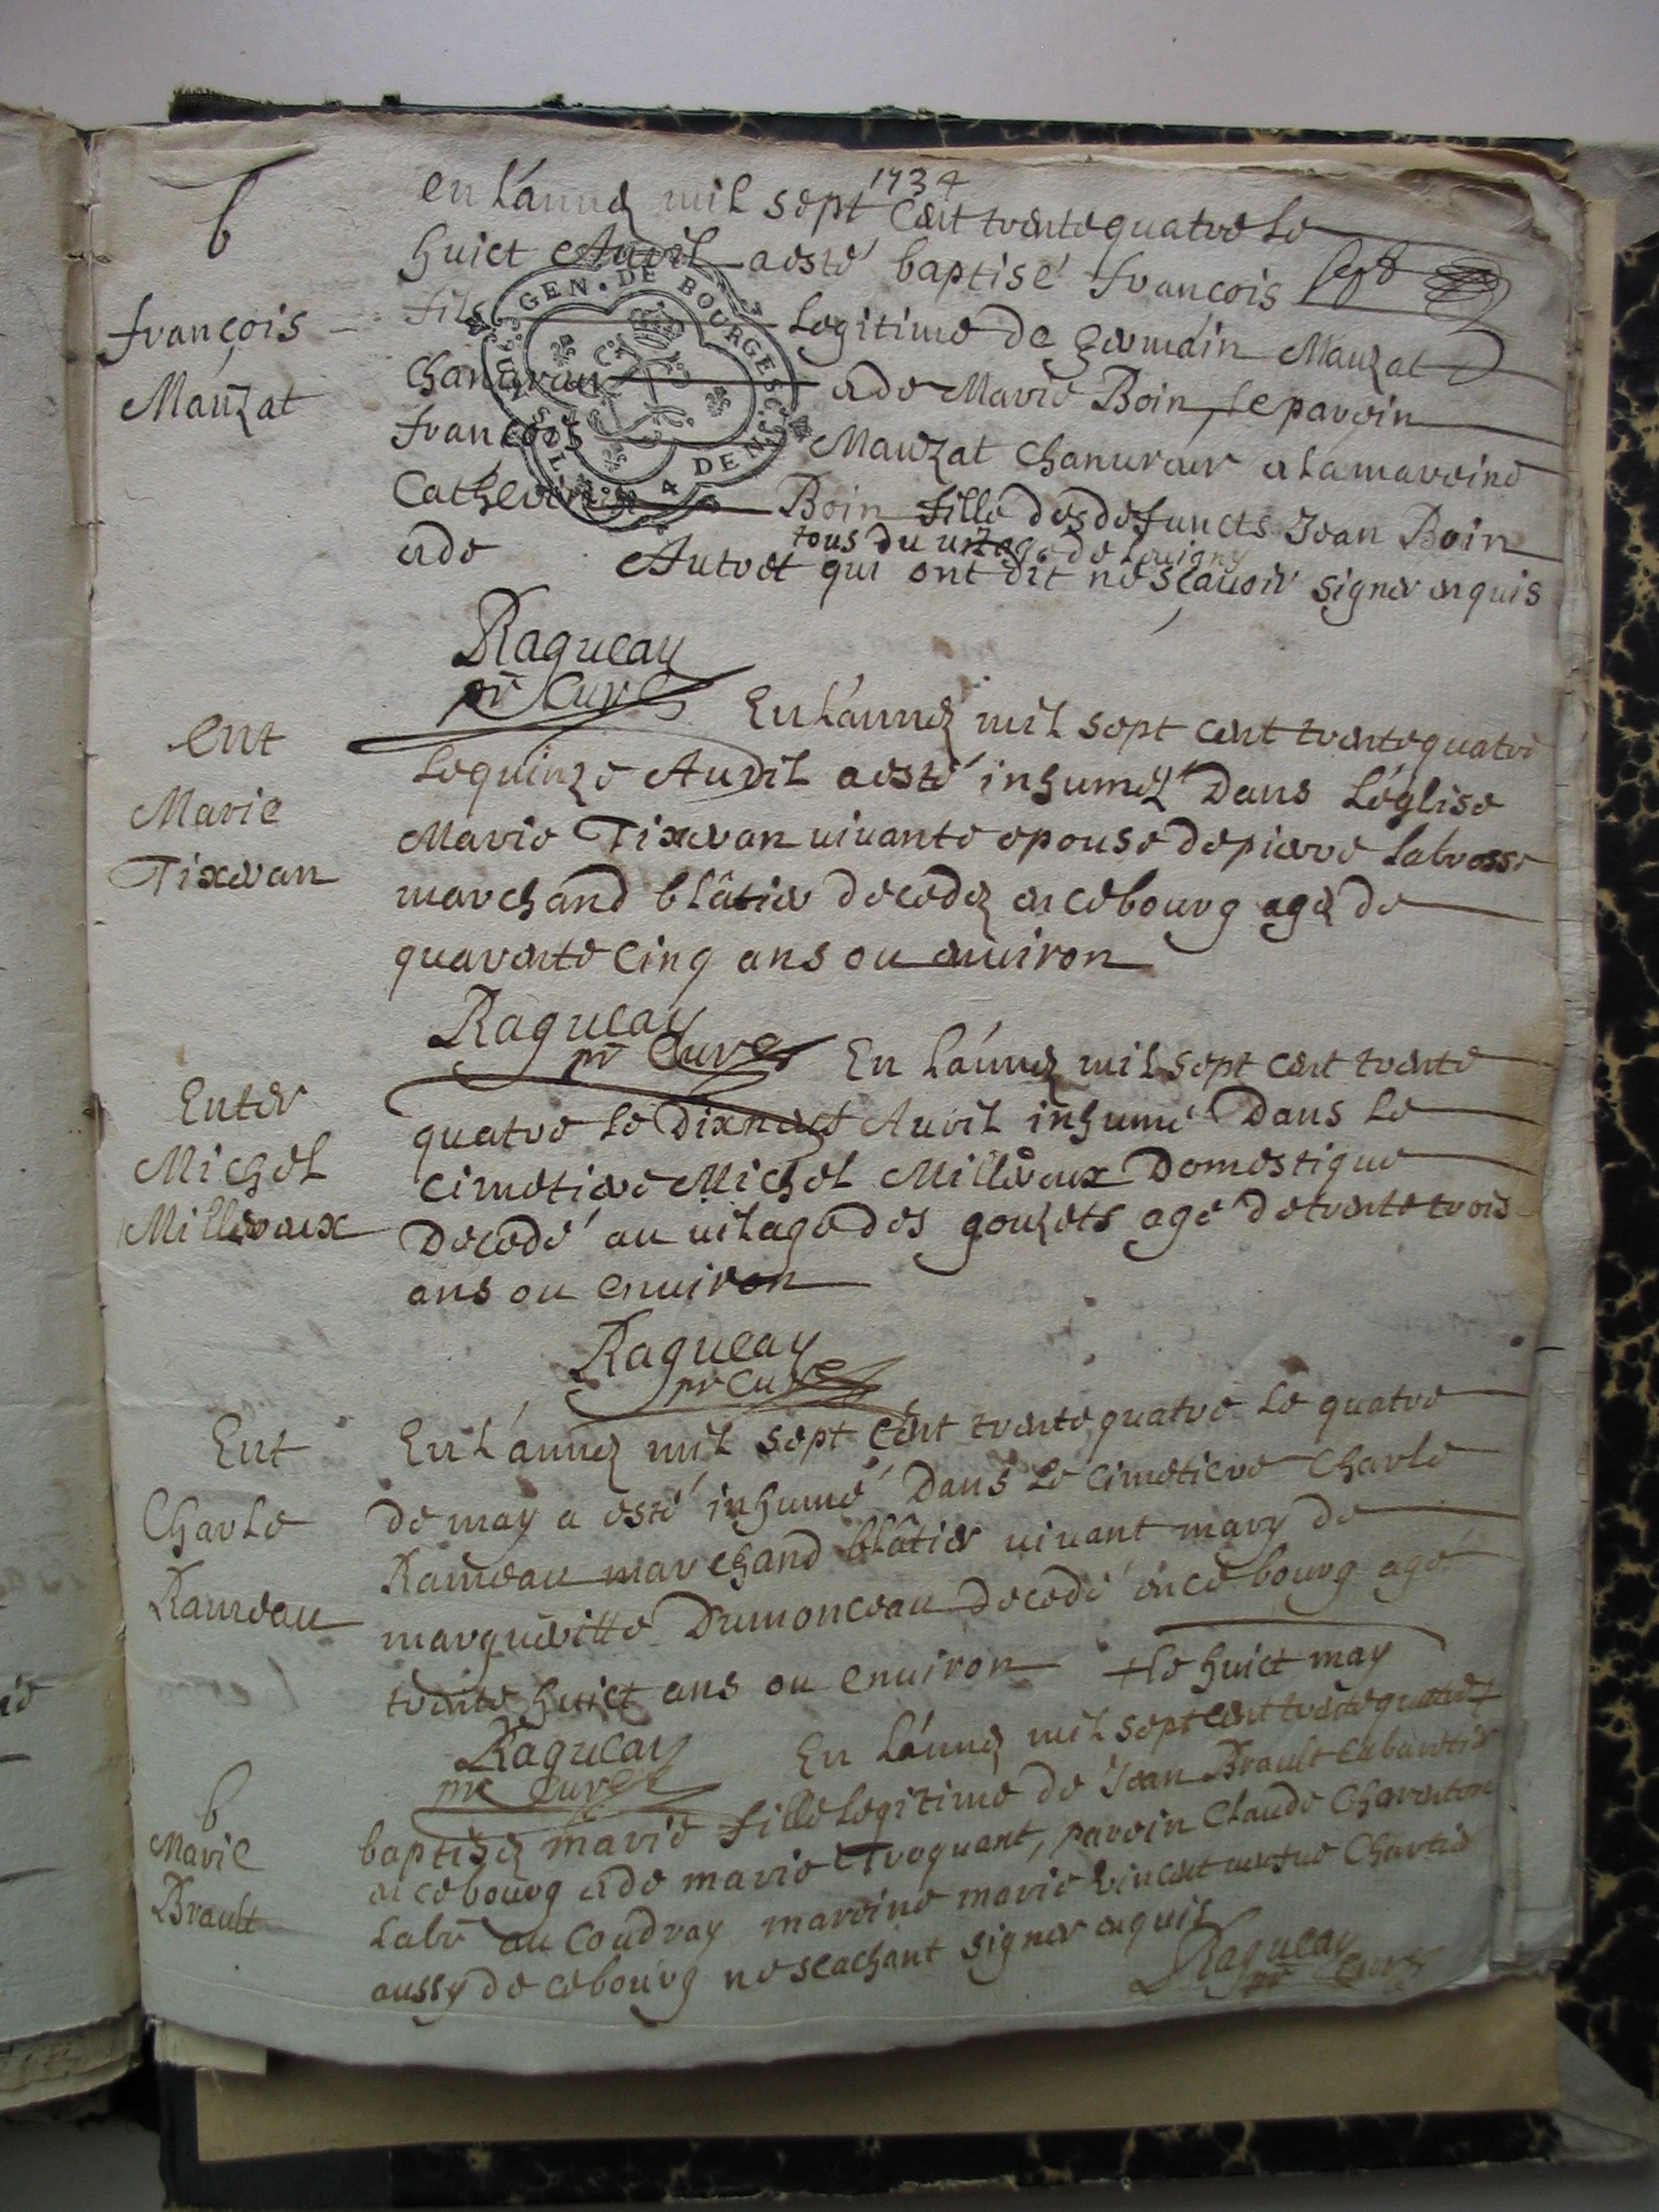 1734
b
en L'année mil sept cent trente quatre le
huict Auril a esté baptisé françois
françois
fils legitime de germain Mauzat
Mauzat
chanvreur et de Marie Boin, le paroin
françois Mauzat chanvreur et la maroine
Catherine Boin fille des defuncts Jean Boin
tous du village de Louigny
et de Autret qui ont dit ne scauoir signer enquis
GEN. DE BOURGES
4 DEN
Ragueau
pr Curé
ent
Marie
Tixeran
En L'année mil sept cent trente quatre
le quinze Auril a esté inhumée Dans L'église
Marie Tixeran uiuante epouse de pierre Labrosse
marchand blâtier decedée en ce bourg agée de
quarente cinq ans ou enuiron
Ragueau
pr Curé
Enter
Michel
Milleraux
En L'année mil sept cent trente
quatre le Dixneuf Auril inhumé Dans le
cimetiere Michel Milleraux Domestique
Decedé au uilage des gouzets agé de trente trois
ans ou enuiron
Ragueau
pr Curé
Ent
Charle
Rameau
En L'année mil sept cent trente quatre le quatre
de may a esté inhumé Dans le cimetiere Charle
Rameau marchand blâtier uiuant mary de
margueritte Dumonceau decedé en ce bourg agé
trente huict ans ou enuiron
Ragueau
pr Curé
b
Marie
Brault
+ le huict may
En L'année mil sept cent trente quatre +
baptisée marie fille legitime de Jean Brault cabartier
en ce bourg et de marie Troquant, paroin Claude Charenton
Labr au Coudray maroine marie Vincent Chartier
aussy de ce bourg ne scachant signer enquis
Ragueau
pr Curé